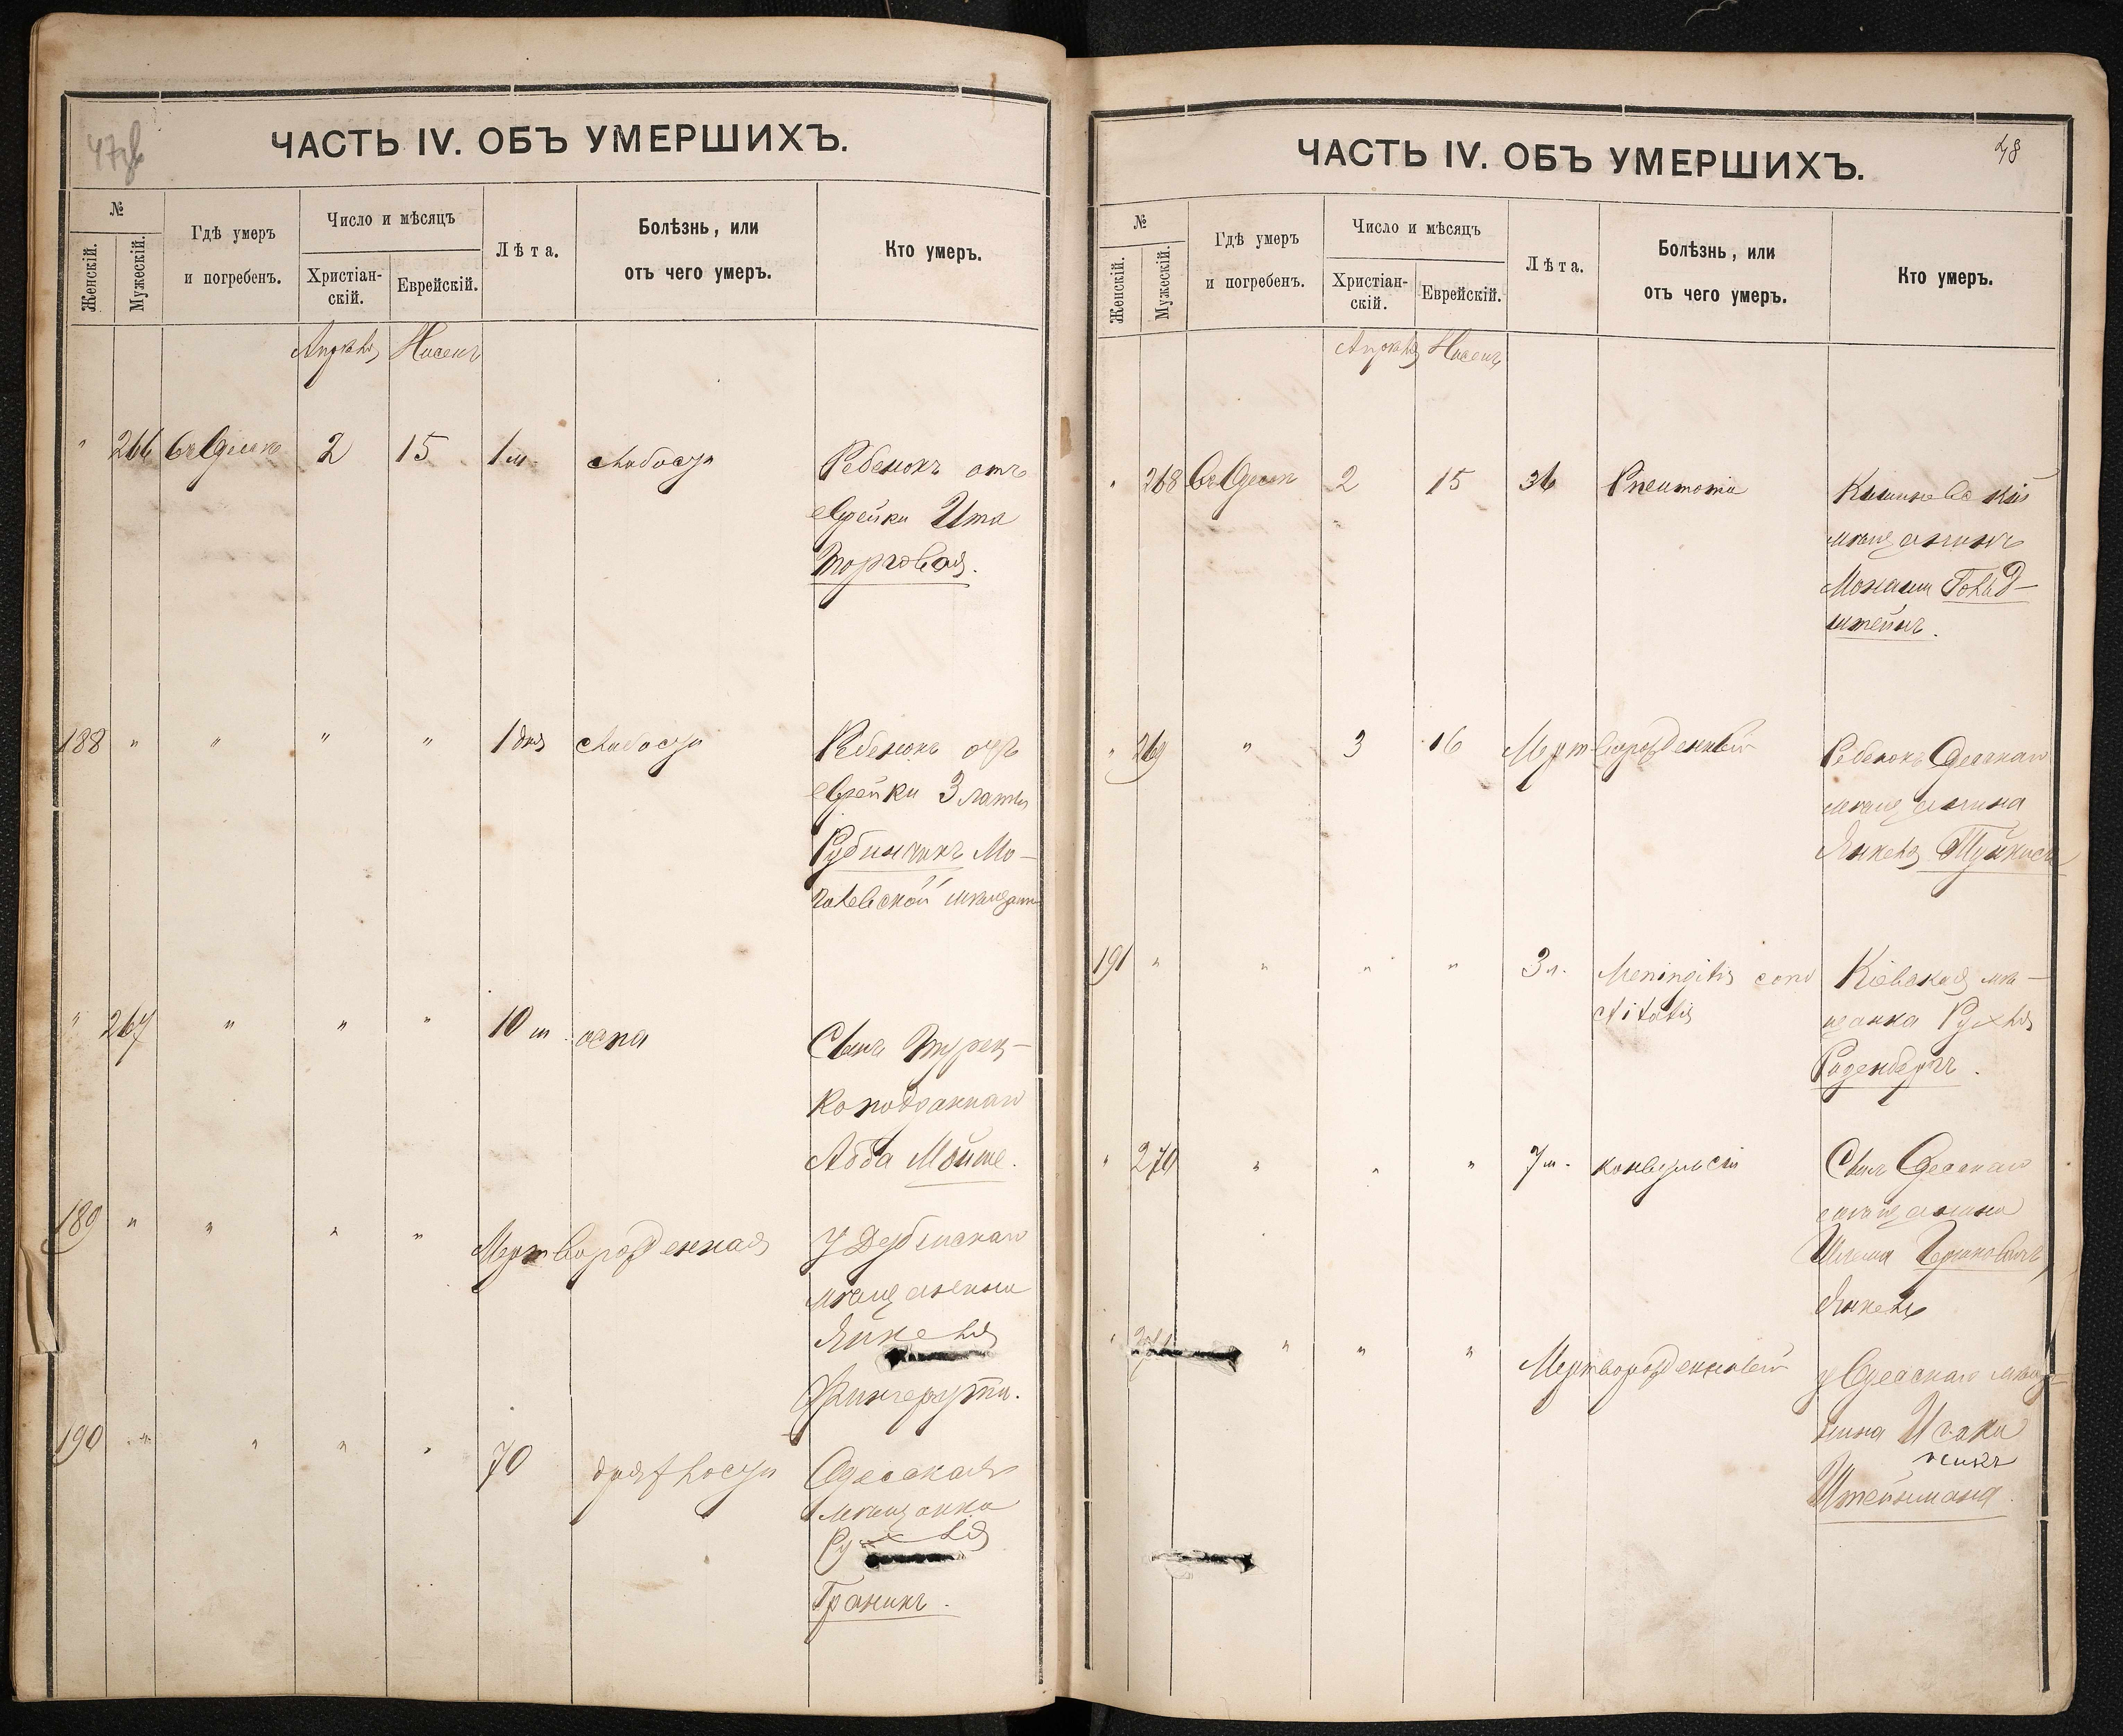 ЧАСТЬ IV. ОБЪ УМЕРШИХЪ.
№
Женскій.
Мужескій.
Гдѣ умеръ
и погребенъ.
Число и мѣсяцъ
Христіан-
скій.
Еврейскій.
Лѣта.
Болѣзнь, или
отъ чего умеръ.
Кто умеръ.
Апрѣль Нисенъ
" 266 въ Одессѣ 2 15 1 м. слабости Ребенокъ отъ
еврейки Ита
Торговая.
188 " " " " 1 дня слабости Ребенокъ отъ
еврейки Златы
Рубинчикъ Мо-
гилевской мѣщанки
" 267 " " " 10 м. оспа Сынъ Турец-
коподданнаго
Абба Мойше.
189 " " " " Мертворожденная У Дубенскаго
мѣщанина
Янкеля
190 " " " " 70 дряхлости Одесская
мѣщанка
Рухля
Граникъ.
ЧАСТЬ IV. ОБЪ УМЕРШИХЪ.
48
№
Женскій.
Мужескій.
Гдѣ умеръ
и погребенъ.
Число и мѣсяцъ
Христіан-
скій.
Еврейскій.
Лѣта.
Болѣзнь, или
отъ чего умеръ.
Кто умеръ.
Апрѣль Нисенъ
" 268 въ Одессѣ 2 15 36 Pneumonia Кишиневскій
мѣщанинъ
Монаши Гольд-
штейнъ.
" 269 " 3 16 Мертворожденный Ребенокъ Одесскаго
мѣщанина
Янкель
191 " " " " 3 л. Meningitis
Кіевская мѣ-
щанка Рухля
Роденбергъ.
" 270 " " " 7 м. конвульсіи Сынъ Одесскаго
мѣщанина
Шлема Гершковичъ
Янкель
" " " " Мертворожденный у Одесскаго мѣща-
нина Исаки
Штейнманд.